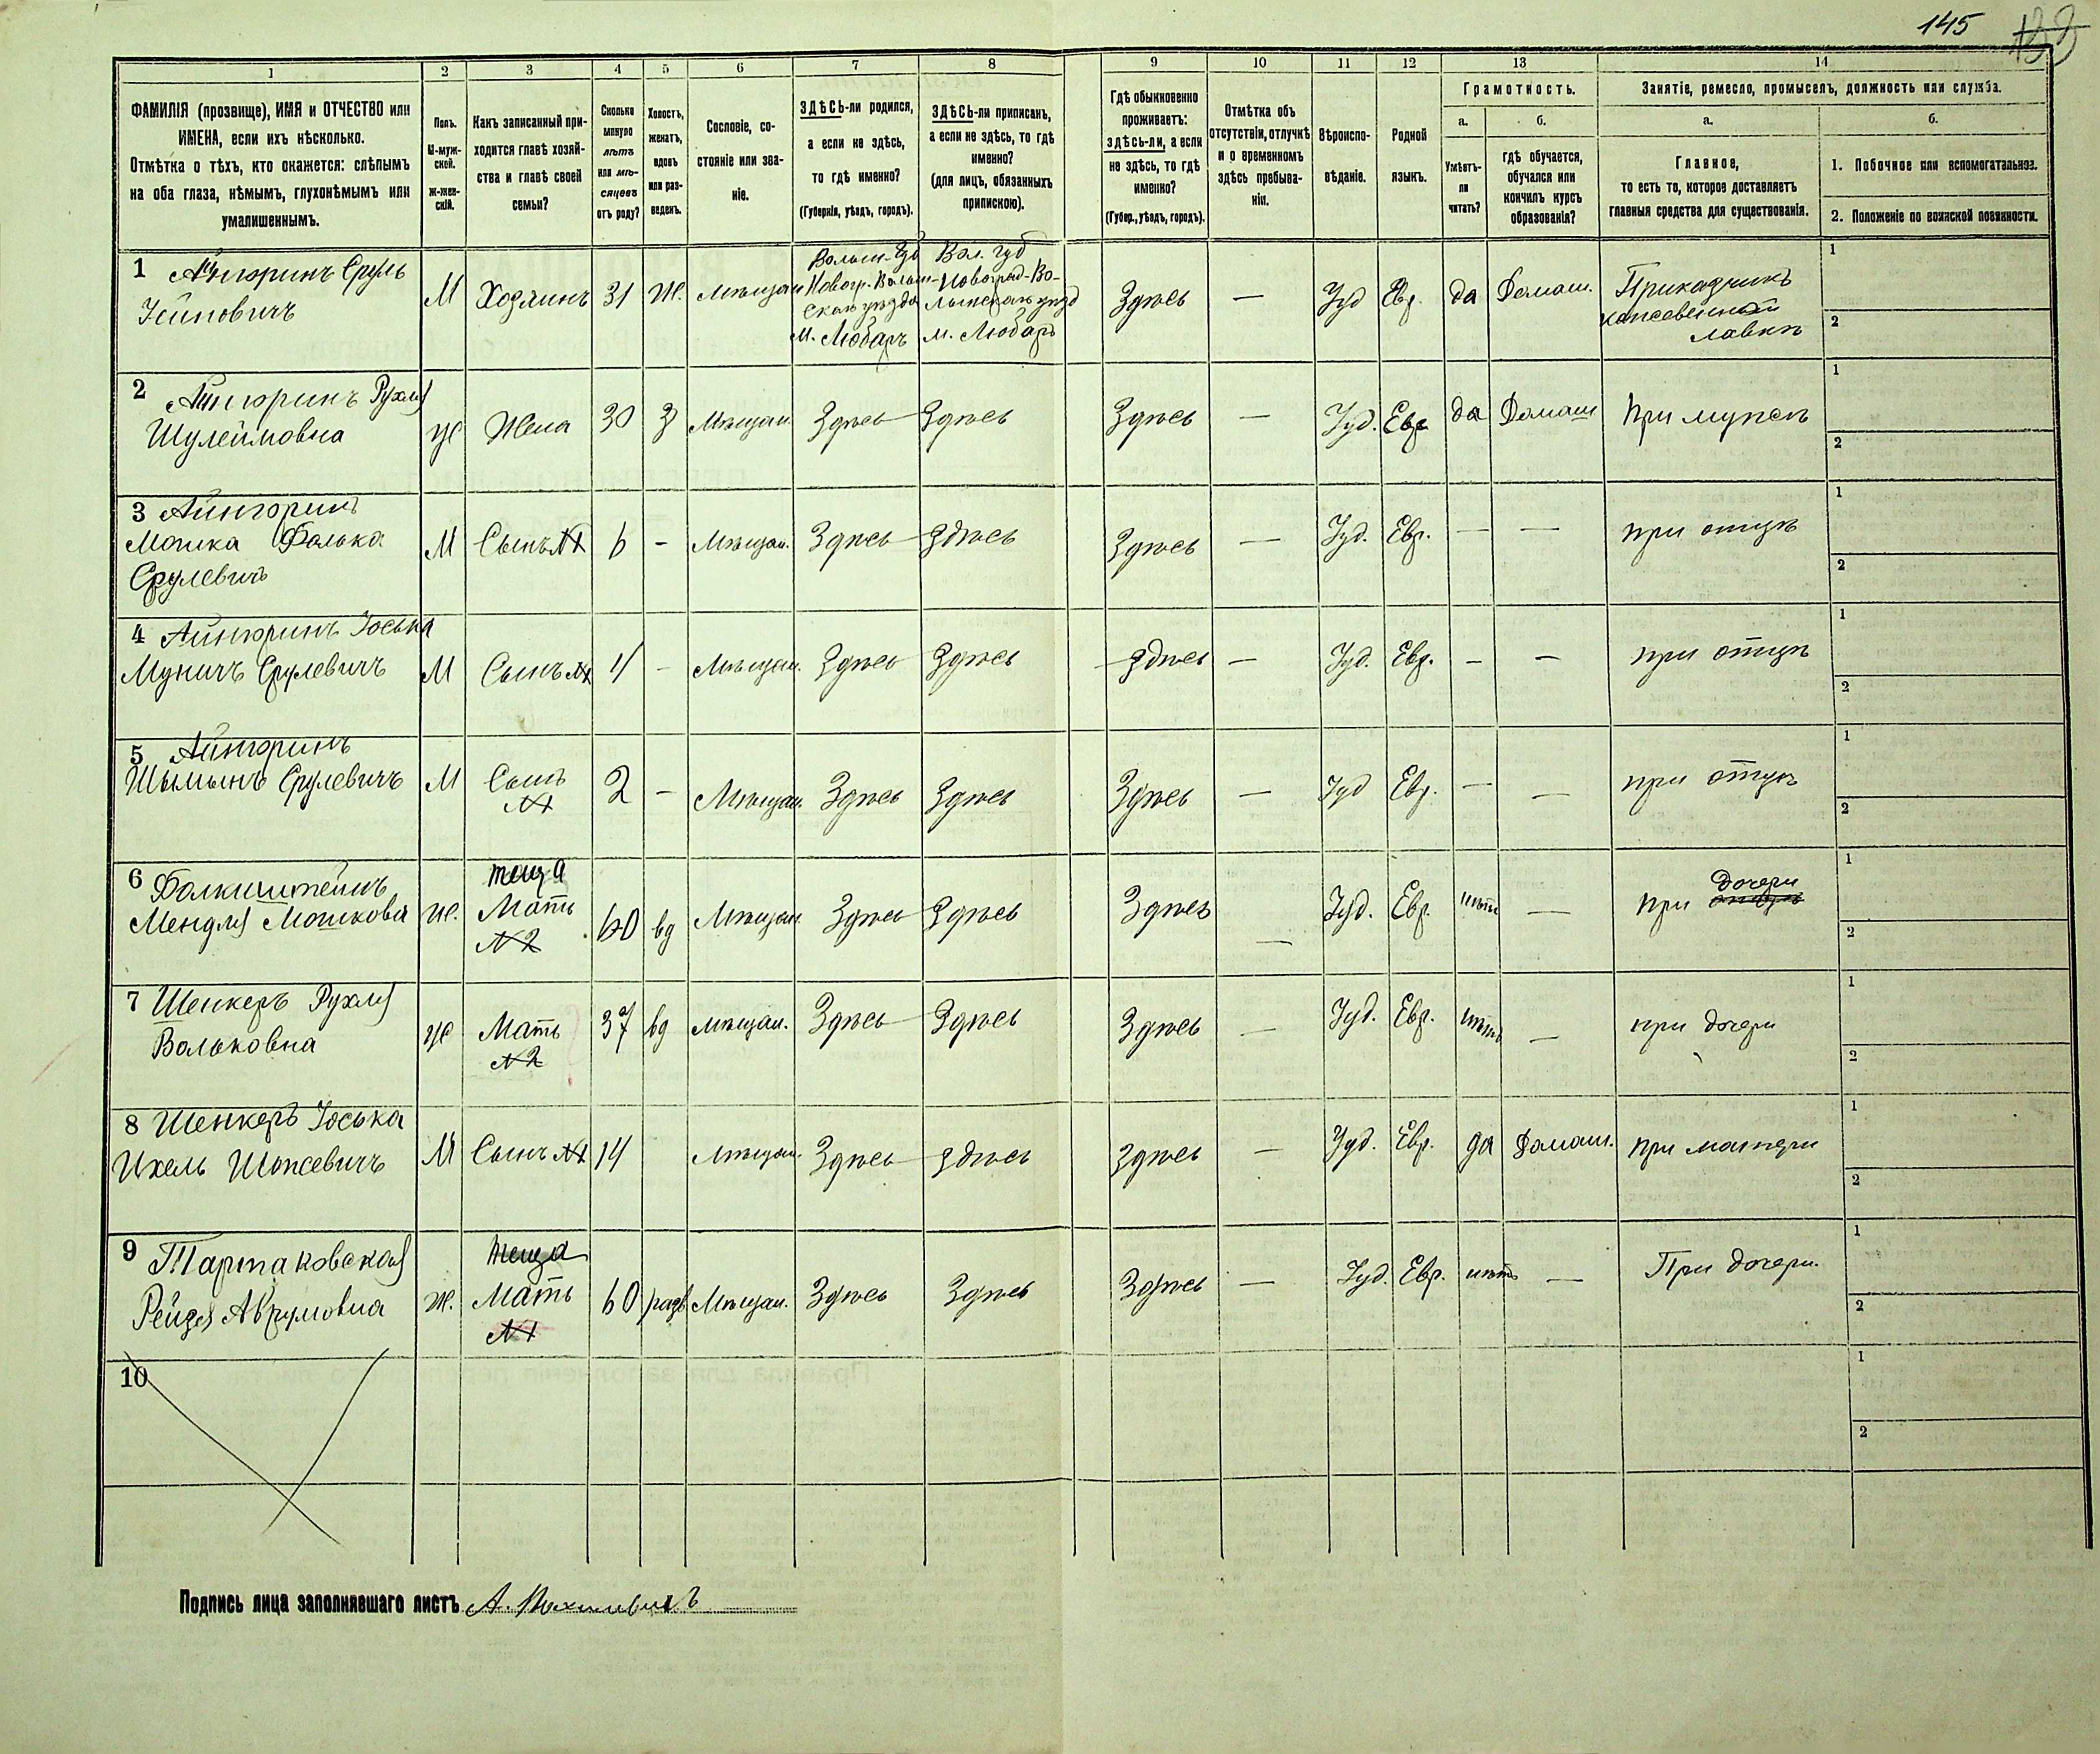 145
133
1
2
3
4
5
6
7
8
9
10
11
12
13
14
ФАМИЛІЯ (прозвище), ИМЯ и ОТЧЕСТВО или
ИМЕНА, если ихъ нѣсколько.
Отмѣтка о тѣхъ, кто окажется: слѣпымъ
на оба глаза, нѣмымъ, глухонѣмымъ или
умалишеннымъ.
Полъ.
М-муж-
ской.
Ж-жен-
скій.
Какъ записанный при-
ходится главѣ хозяй-
ства и главѣ своей
семьи?
Сколько
минуло
лѣтъ
или мѣ-
сяцевъ
отъ роду?
Холостъ,
женатъ,
вдовъ
или раз-
веденъ.
Сословіе, со-
стояніе или зва-
ніе.
ЗДѢСЬ-ли родился,
а если не здѣсь,
то гдѣ именно?
(Губернія, уѣздъ, городъ).
ЗДѢСЬ-ли приписанъ,
а если не здѣсь, то гдѣ
именно?
(для лицъ, обязанныхъ
припискою).
Гдѣ обыкновенно
проживаетъ:
здѣсь-ли, а если
не здѣсь, то гдѣ
именно?
(Губер., уѣздъ, городъ).
Отмѣтка объ
отсутствіи, отлучкѣ
и о временномъ
здѣсь пребыва-
ніи.
Вѣроиспо-
вѣданіе.
Родной
языкъ.
Грамотность.
а.
б.
Умѣетъ-
ли
читать?
гдѣ обучается,
обучался или
кончилъ курсъ
образованія?
Занятіе, ремесло, промыселъ, должность или служба.
а.
б.
Главное,
то есть то, которое доставляетъ
главныя средства для существованія.
1. Побочное или вспомогательное.
2. Положеніе по воинской повинности.
1 Айнгоринъ Сруль
М Хозяинъ 31 Ж. Мѣщан
Волын. Губ
Новогр. Волын-
скаго уѣзда
м. Любаръ
Вол. губ
Новоград-Во-
лынскаго уѣзд
м. Любаръ
Здѣсь — Іуд Евр. да Домаш.
Прикащикъ
лавкѣ
1
2
2 Айнгоринъ Рухля
Шулеймовна
Ж Жена 30 З Мѣщан. Здѣсь Здѣсь Здѣсь — Іуд. Евр да Домаш При мужѣ
1
2
3 Айнгоринъ
Мошка Фолька
Срулевичъ
М Сынъ №1 6 - Мѣщан. Здѣсь Здѣсь Здѣсь — Іуд. Евр. — — при отцѣ
1
2
4 Айнгоринъ Іоська
Муничъ Срулевичъ
М Сынъ №1 4 - Мѣщан. Здѣсь Здѣсь Здѣсь — Іуд. Евр. — — при отцѣ
1
2
5 Айнгоринъ
Шымынъ Срулевичъ
М Сынъ
№1
2 - Мѣщан. Здѣсь Здѣсь Здѣсь — Іуд Евр. — — при отцѣ
1
2
6 Фолкиштейнъ
Мендля Мошкова
Ж.
теща
Мать
№2
60 вд Мѣщан. Здѣсь Здѣсь Здѣсь — Іуд. Евр. нѣтъ — при дочери
1
2
7 Шенкеръ Рухля
Вольковна
Ж Мать
№2
37 вд Мѣщан. Здѣсь Здѣсь Здѣсь — Іуд. Евр. нѣтъ — при дочери
1
2
8 Шенкеръ Іоська
Ихель Шопсевичъ
М Сынъ №1 14 Мѣщан. Здѣсь Здѣсь Здѣсь — Іуд. Евр. да Домаш. при матери
1
2
9 Тартаковская
Рейзя Аврумовна
Ж.
теща
Мать
№1
60 разв Мѣщан. Здѣсь Здѣсь Здѣсь — Іуд. Евр. нѣтъ — При дочери.
1
2
10
1
2
Подпись лица заполнявшаго листъ А.